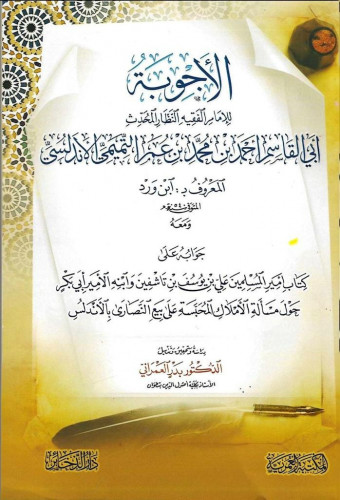 الأجوبة
للإمام الفقيه النظار المحدث
أبي القاسم أحمد بن محمد بن عمر التميمي الأندلسي
المعروف بـ: ابن ورد
ومعه
جوابه على
كتاب أمير المسلمين علي بن يوسف بن تاشفين وابنه الأمير أبي بكر
حول مسألة الأملاك المحبسة على بيع النصارى بالأندلس
دراسة وتحقيق وتذييل
الدكتور بدر العمراني
الأستاذ بكلية أصول الدين بتطوان
دار الذخائر
المكتبة العمرية